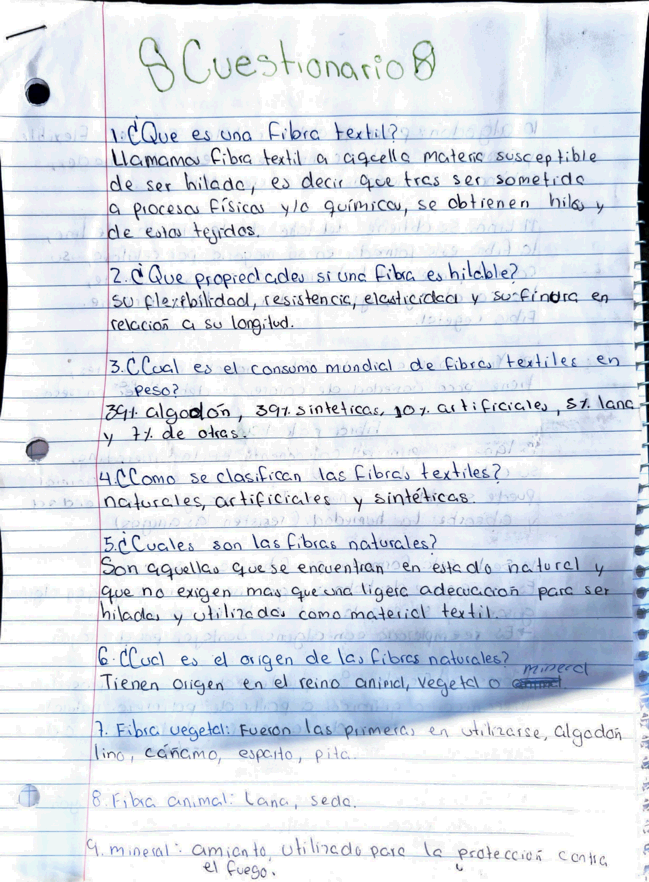 8 Cuestionario 8
1. ¿Que es una fibra textil?
Llamamos fibra textil a aqcella materia susceptible
de ser hilada, es decir que tras ser sometida
a procesos físicos y/o químicos, se obtienen hilos y
de estos tejidos.
2. ¿Que propiedades si una fibra es hilable?
su flexibilidad, resistencia, elasticidad y su finura en
relación a su longitud.
3. ¿Cual es el consumo mundial de fibras textiles en
peso?
39% algodón, 39% sinteticas, 10% artificiales, 5% lana
y 7% de otras.
4. ¿Como se clasifican las fibras textiles?
naturales, artificiales y sintéticas.
5. ¿Cuales son las fibras naturales?
Son aquellas que se encuentran en estado natural y
que no exigen mas que una ligera adecuación para ser
hiladas y utilizadas como material textil.
6. ¿Cual es el origen de las fibras naturales?
Tienen origen en el reino animal, vegetal o mineral
7. Fibra vegetal: Fueron las primeras en utilizarse, algodón
lino, cáñamo, esparto, pita.
8. Fibra animal: Lana, seda.
9. mineral: amianto, utilizado para la protección contra
el fuego.